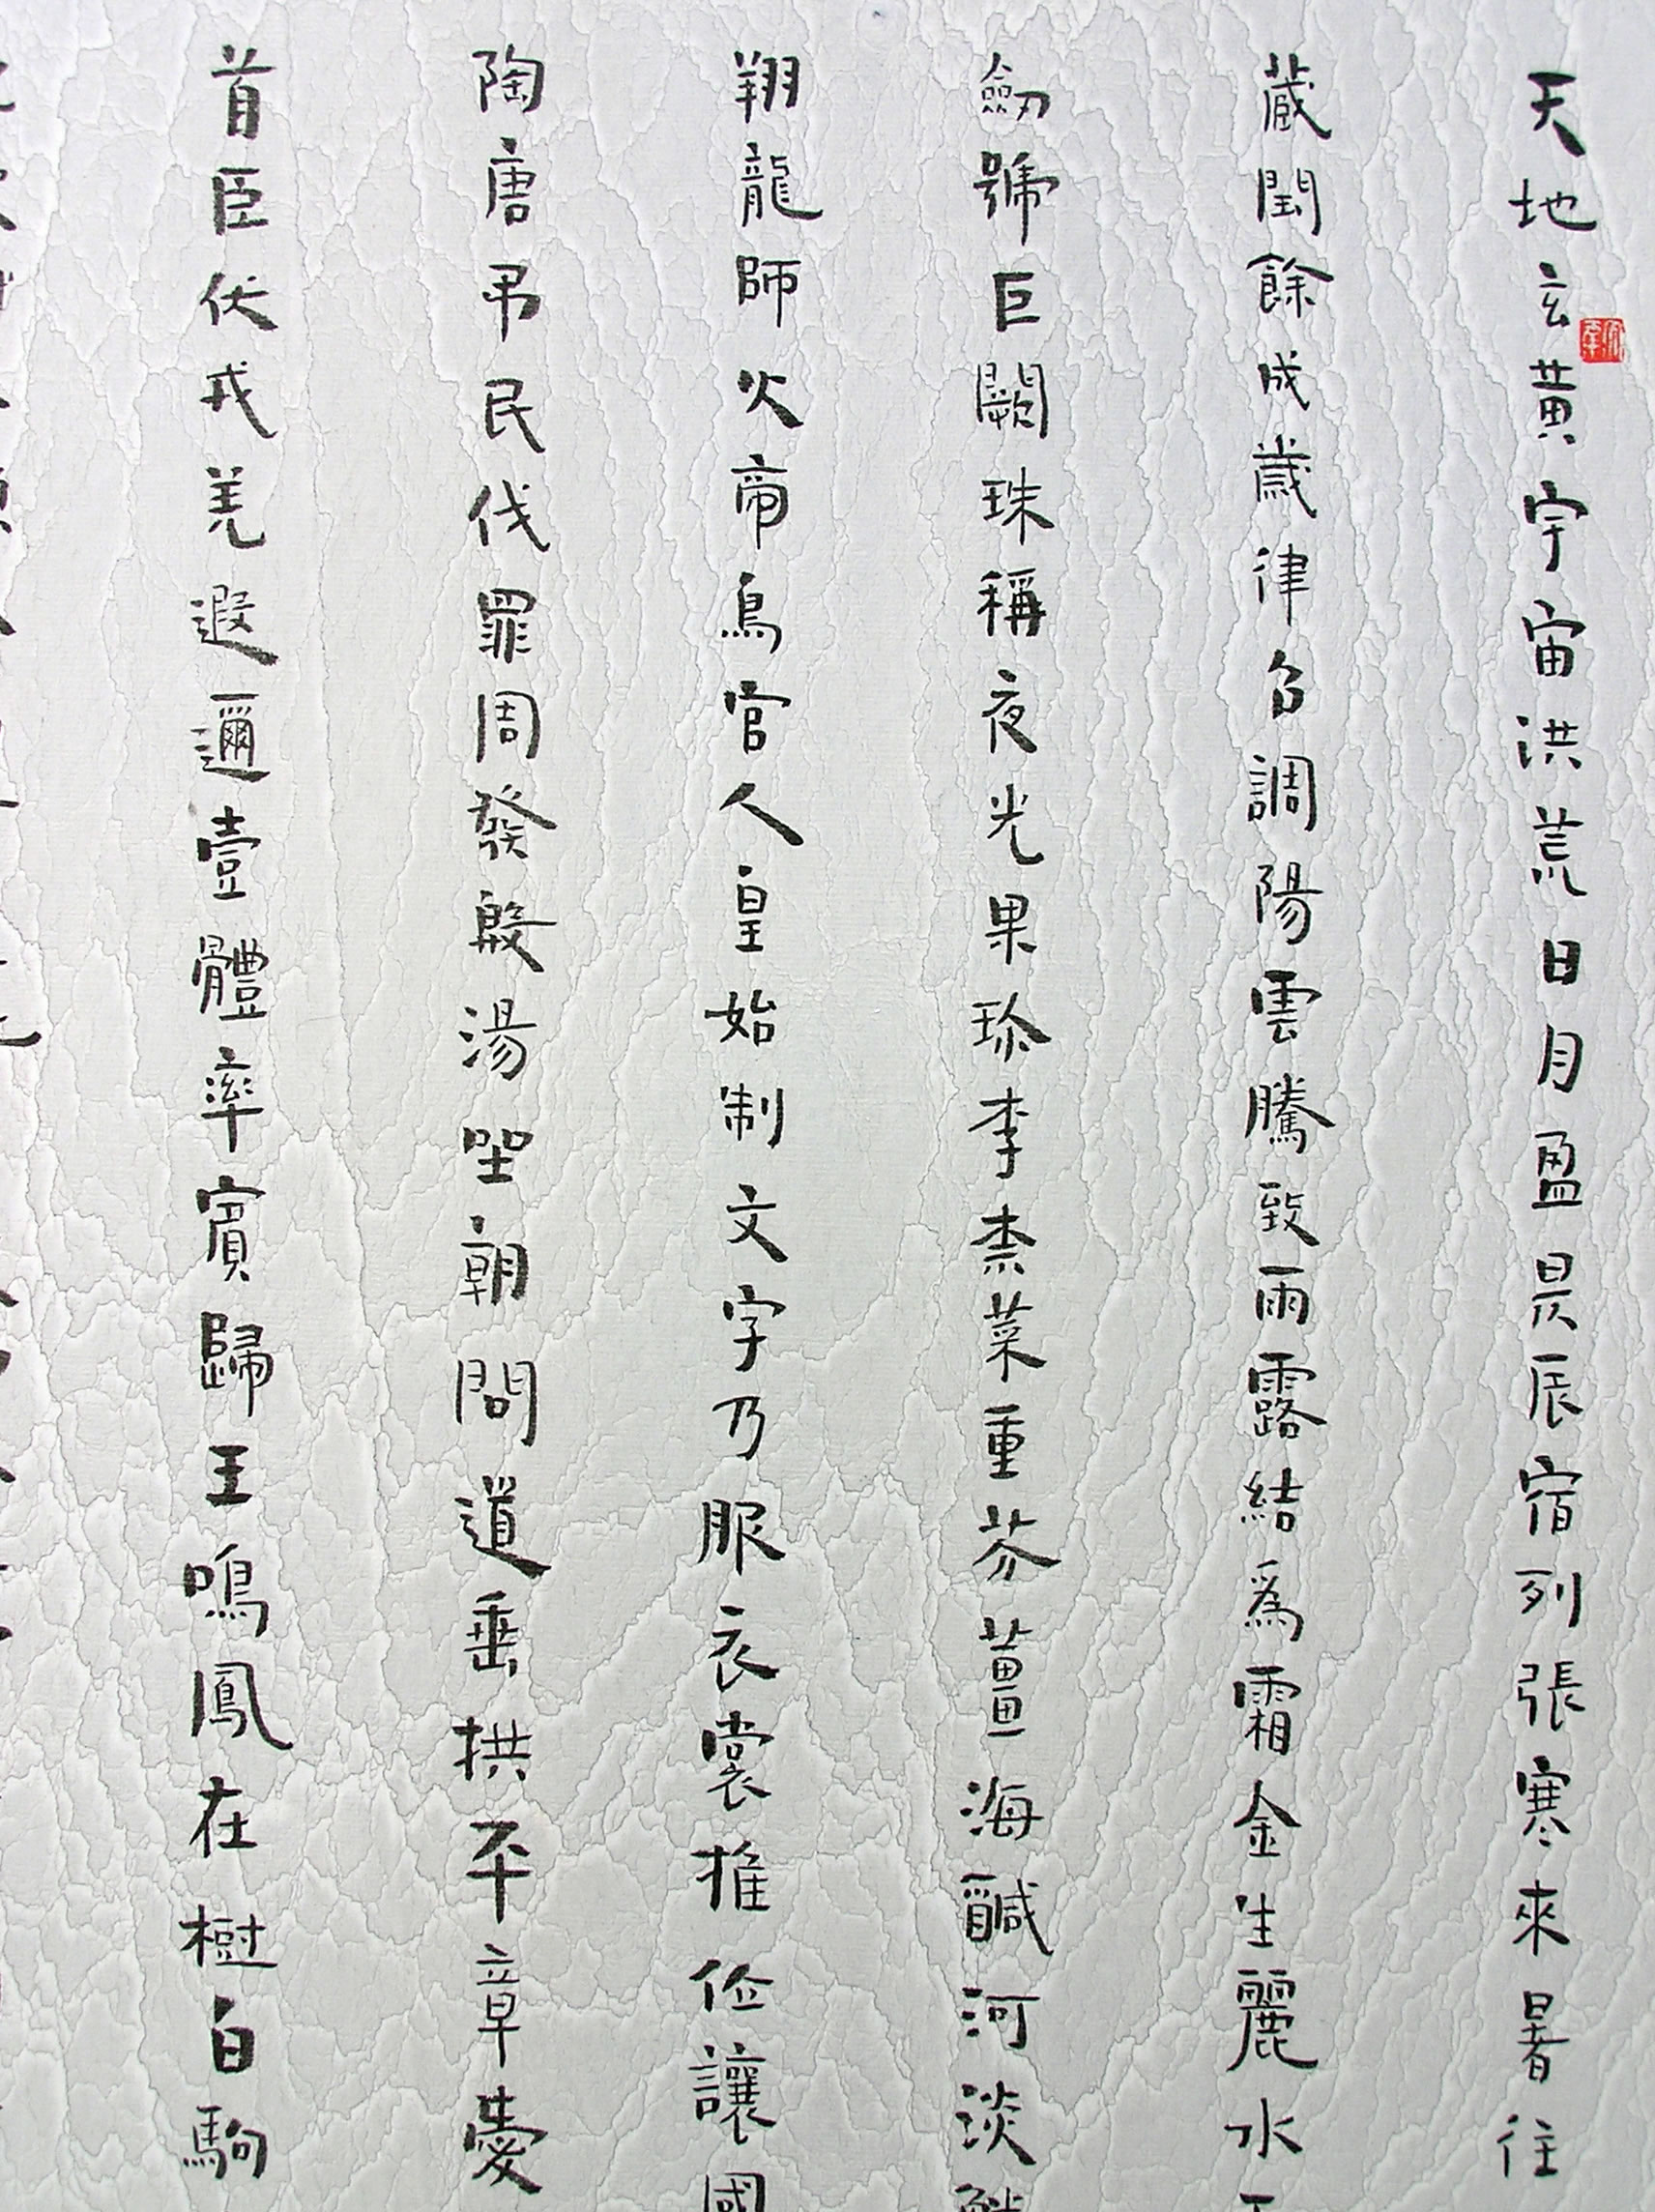 天地玄黃宇宙洪荒日月盈昃辰宿列張寒來暑往
藏閏餘成歲律召調陽雲騰致雨露結爲霜金生麗水
劒號巨闕珠稱夜光果珍李柰菜重芥薑海鹹河淡
翔龍師火帝鳥官人皇始制文字乃服衣裳推位讓國
陶唐弔民伐罪周發殷湯坐朝問道垂拱平章愛
首臣伏戎羌遐邇壹體率賓歸王鳴鳳在樹白駒